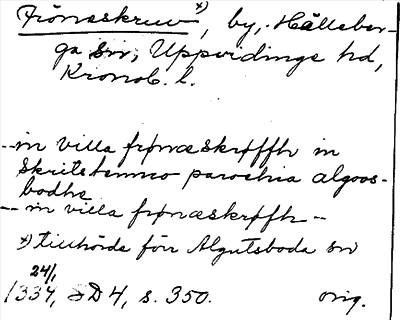 Fröneskruv x), by, Hälleber-
ga sn, Uppvidinge hd,
Kronob. l.
-- in villa frønæskrøffh in
skritshemmo parochia algoos-
bodhe
-- in villa frønæskrøffh --
x) tillhörde förr Algutsboda sn
24/1
1334, SD 4, s. 350. orig.